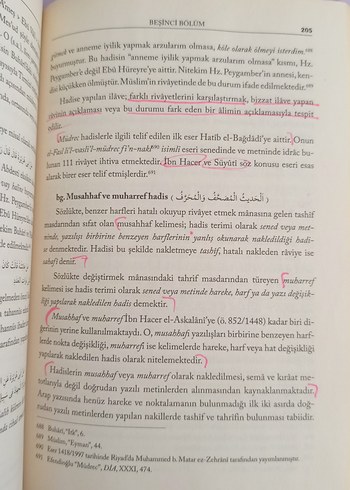 BEŞİNCİ BÖLÜM
205
ğitmek ve anneme iyilik yapmak arzularım olmasa, köle olarak ölmeyi isterdim.
buyurmuştur. Bu hadisin "anneme iyilik yapmak arzularım olmasa" kısmı, Hz.
Peygamber'e değil Ebû Hüreyre'ye aittir. Nitekim Hz. Peygamber'in annesi, ken-
disi küçükken ölmüştür. Müslim'in rivayetinde de bu durum ifade edilmektedir.
Hadise yapılan ilâve; farklı rivayetlerini karşılaştırmak, bizzat ilâve yapan
râvinin açıklaması veya bu durumu fark eden bir âlimin açıklamasıyla tespit
edilir.
Müdrec hadislerle ilgili telif edilen ilk eser Hatîb el-Bağdâdî'ye aittir. Onun
el-Fasl li'l-vasli'l-müdrec fi'n-nakl isimli eseri senedinde ve metninde idrâc bu-
lunan 111 rivâyet ihtiva etmektedir. İbn Hacer ve Süyûtî söz konusu eseri esas
alarak birer eser telif etmişlerdir.
bg. Musahhaf ve muharref hadis ( اَلْحَدِيثُ الْمُصَحَّفُ وَالْمُحَرَّفُ )
Sözlükte, benzer harfleri hatalı okuyup rivâyet etmek mânasına gelen tashîf
masdarından sıfat olan musahhaf kelimesi; hadis terimi olarak sened veya met-
ninde, yazılışı birbirine benzeyen harflerinin yanlış okunarak nakledildiği hadi-
se denir. Hadisi bu şekilde nakletmeye tashîf, hatalı nakleden râviye ise
sahafî denir.
Sözlükte değiştirmek mânasındaki tahrîf masdarından türeyen muharref
kelimesi ise hadis terimi olarak sened veya metinde hareke, harf ya da yazı değişik-
liği yapılarak nakledilen hadis demektir.
Musahhaf ve muharref İbn Hacer el-Askalânî'ye (ö. 852/1448) kadar biri di-
ğerinin yerine kullanılmaktaydı. O, musahhafı yazılışları birbirine benzeyen harf-
lerde nokta değişikliği, muharrefi ise kelimelerde hareke, harf veya hat değişikliği
yapılarak nakledilen hadis olarak nitelemektedir.
Hadislerin musahhaf veya muharref olarak nakledilmesi, semâ ve kırâat me-
totlarıyla değil doğrudan yazılı metinlerden alınmasından kaynaklanmaktadır.
Arap yazısında henüz hareke ve noktalamanın bulunmadığı ilk iki asırda doğ-
rudan yazılı metinlerden yapılan nakillerde tashîf ve tahrîfin bulunması tabiidir.
688 Buhârî, "Itk", 6.
689 Müslim, "Eymân", 44.
690 Eser 1418/1997 tarihinde Riyad'da Muhammed b. Matar ez-Zehrânî tarafından yayımlanmıştır.
691 Efendioğlu "Müdrec", DİA, XXXI, 474.